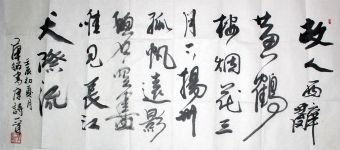 故人西辭
黃鶴
樓烟花三
月下揚州
孤帆遠影
碧空盡
唯見長江
天際流
唐詩